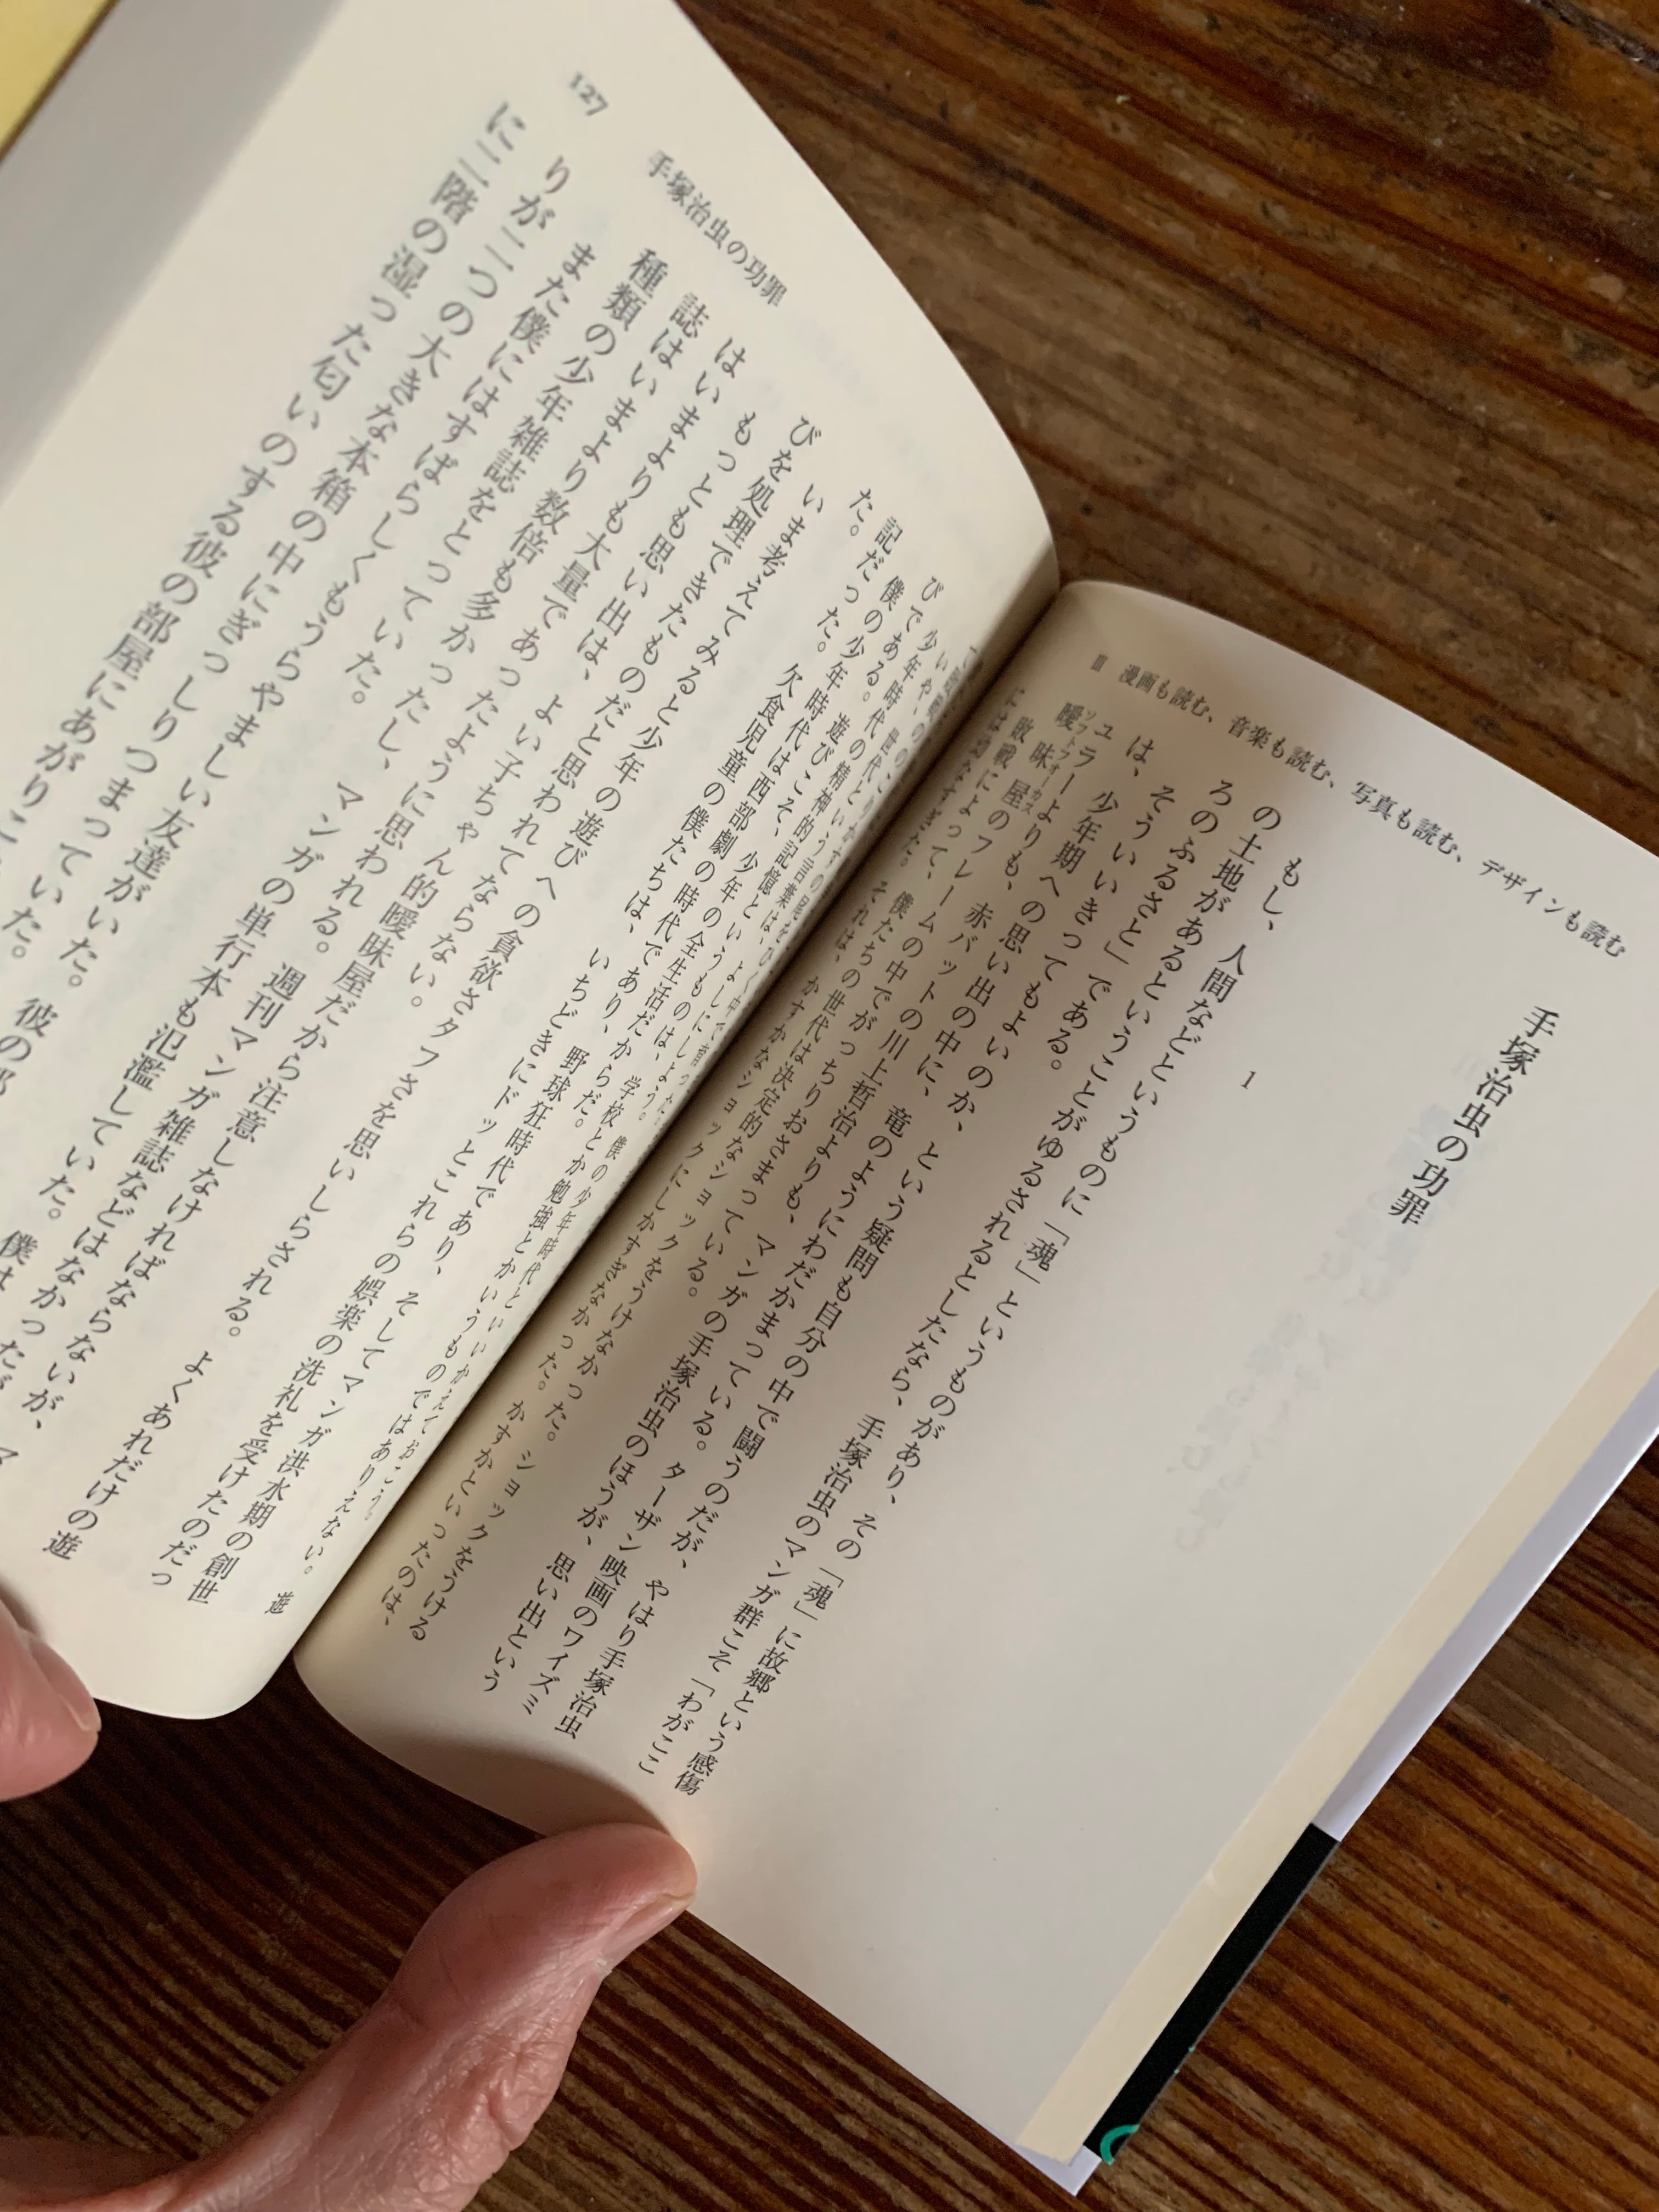 Ⅲ 漫画も読む、音楽も読む、写真も読む、デザインも読む
手塚治虫の功罪
1
もし、人間などというものに「魂」というものがあり、その「魂」に故郷という感傷
の土地があるということがゆるされるとしたなら、手塚治虫のマンガ群こそ「わがここ
ろのふるさと」である。
そういいきってもよいのか、という疑問も自分の中で闘うのだが、やはり手塚治虫
は、少年期への思い出の中に、竜のようにわだかまっている。ターザン映画のワイズミ
ュラーよりも、赤バットの川上哲治よりも、マンガの手塚治虫のほうが、思い出という
曖昧屋のフレームの中でがっちりおさまっている。
ソフトフォーカス
敗戦によって、僕たちの世代は決定的なショックをうけなかった。ショックをうける
には幼なすぎた。それは、かすかなショックにしかすぎなかった。かすかといったのは、
127
手塚治虫の功罪
世代という言葉は、よしにしよう。僕の少年時代といいかえておこう。
少年時代の精神的記憶というものは、学校とか勉強とかいうものではありえない。遊
びである。遊びこそ、少年の全生活だからだ。
僕の少年時代は西部劇の時代であり、野球狂時代であり、そしてマンガ洪水期の創世
記だった。欠食児童の僕たちは、いちどきにドッとこれらの娯楽の洗礼を受けたのだっ
た。
いま考えてみると少年の遊びへの貪欲さタフさを思いしらされる。よくあれだけの遊
びを処理できたものだと思われてならない。
もっとも思い出は、よい子ちゃん的曖昧屋だから注意しなければならないが、マ
はいまよりも大量であったように思われる。週刊マンガ雑誌などはなかったが、
誌はいまより数倍も多かったし、マンガの単行本も氾濫していた。僕は
種類の少年雑誌をとっていた。
また僕にはすばらしくもうらやましい友達がいた。彼の部
りが二つの大きな本箱の中にぎっしりつまっていた。
に二階の湿った匂いのする彼の部屋にあがりこ